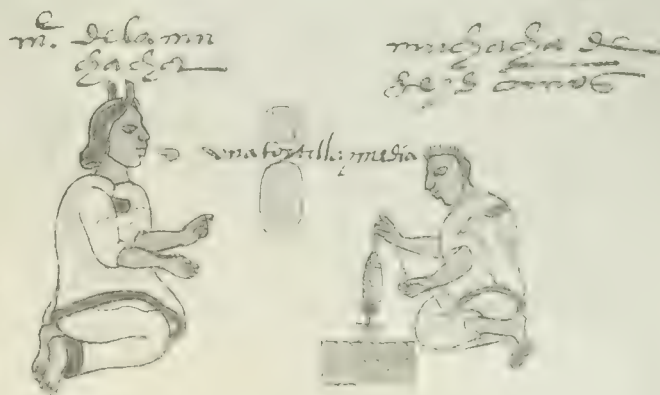 me. de la mu
chacha
muchacha de
seys años
una tortilla y media